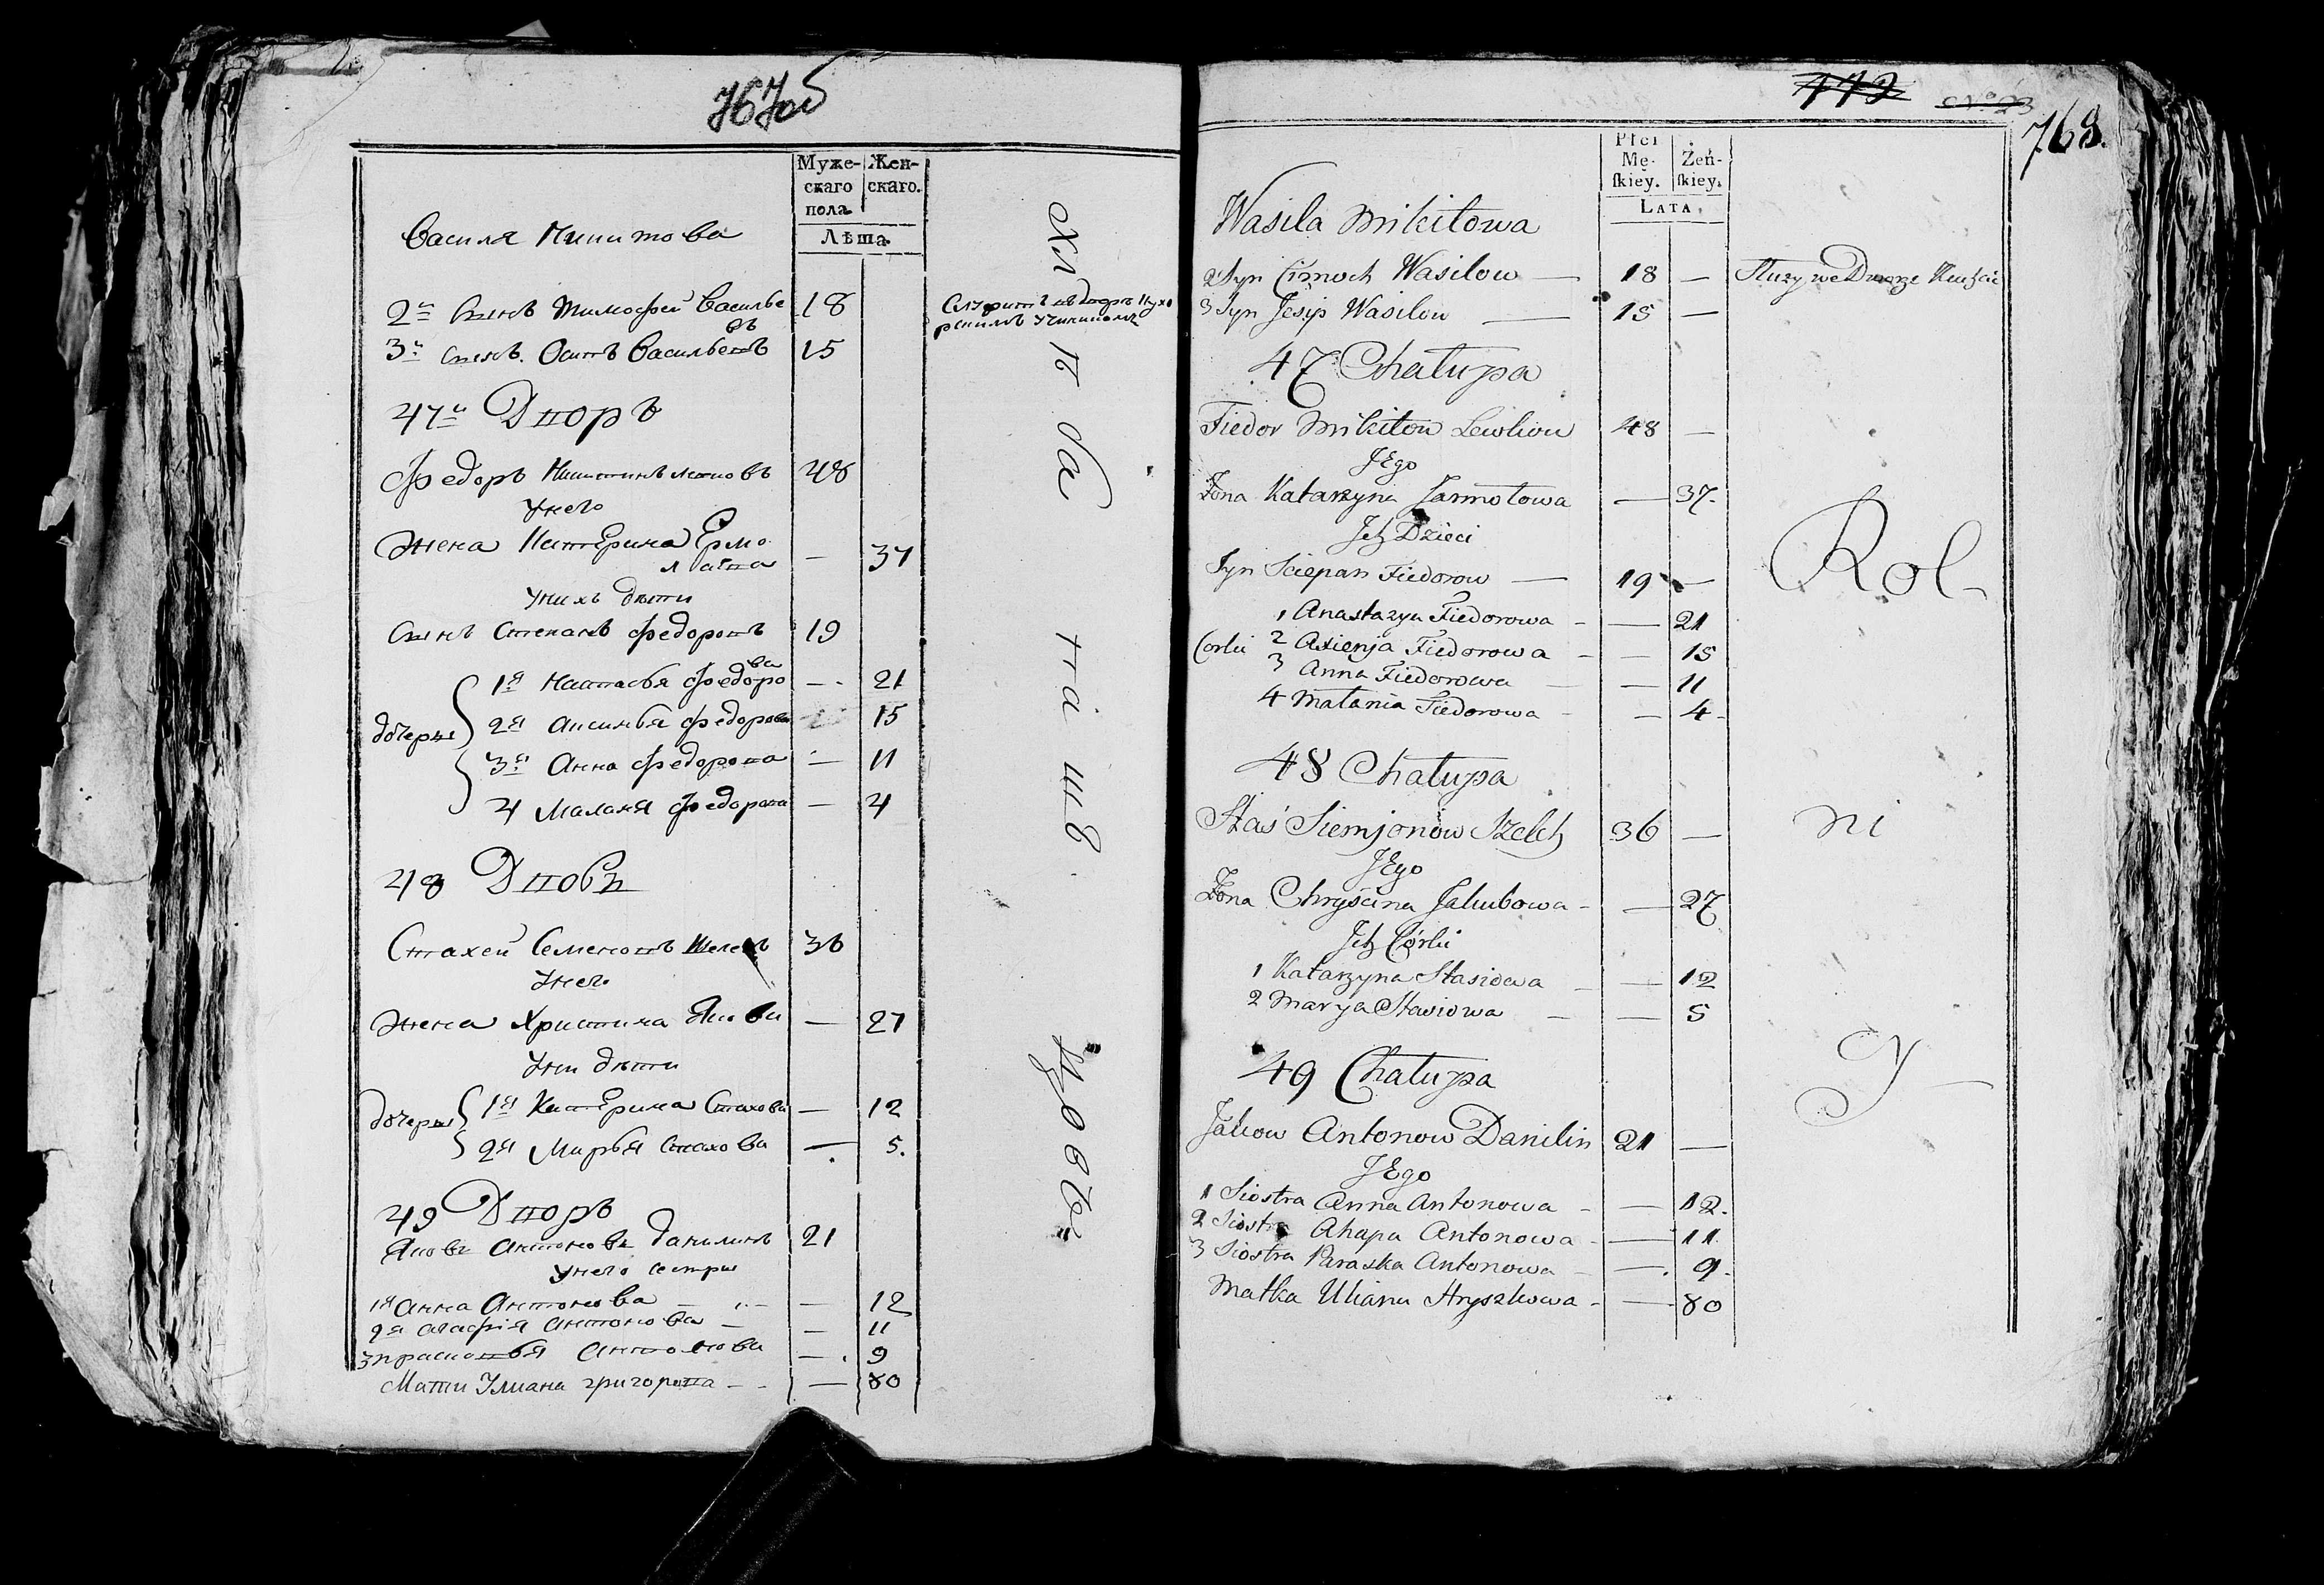 767об
Муже-
скаго
пола
Жен-
скаго.
Лѣта
Василя Никитова
2й Сынъ Тимофей Василье
въ 18
3й Сынъ Осипъ Васильевъ 15
47й Дворъ
Федоръ Никитинъ 48
У него
Жена Катерина Ермо
лаева — 37
У нихъ дѣти
Сынъ Степанъ Федоровъ 19
дочери
1я Настасья Федоро
ва — 21
2я Аксинья Федорова 15
3я Анна Федорова — 11
4 Маланя Федорова — 4
48 Дворъ
Стахей Семеновъ Шелехъ 36
У него
Жена Христина — 27
дѣти
дочери
1я Катерина Стахова — 12
2я Марья Стахова — 5.
49 Дворъ
Яковъ Антоновъ Данилинъ 21
У него сестры
1я Анна Антонова — 12
2я Агафія Антонова — 11
3 Прасковья Антонова — 9
Мати Улиана Григорова — 80
Хлѣба
пашв
цовъ
172
No 23
768.
Płci
Mę-
ſkiey.
Żeń-
ſkiey.
LATA
Wasila Mikitowa
2 Syn Cimoch Wasilow — 18 — Służy we Dworze
3 Syn Jesip Wasilow — 15 —
47 Chałupa
Fiedor Mikitow Lewkow 48 —
JEgo
Żona Katarzyna Jarmołowa — 37.
Jch Dzieci
Syn Sciepan Fiedorow — 19 —
1 Anastazya Fiedorowa — 21
Corki 2 Axienja Fiedorowa — 15
3 Anna Fiedorowa — 11
4 Matania Fiedorowa — 4
48 Chałupa
Staś Siemjonow Szelech 36 —
JEgo
Żona Chryścina Jakubowa — 27
Jch Córki
1 Katarzyna Stasiowa — 12
2 Marya Stasiowa — 5
49 Chałupa
Jakow Antonow Danilin 21 —
JEgo
1 Siostra Anna Antonowa — 12.
2 Siostra Ahapa Antonowa — 11
3 Siostra Paraska Antonowa — 9.
Matka Uliana Hryszkowa — 80
Rol-
ni
cy